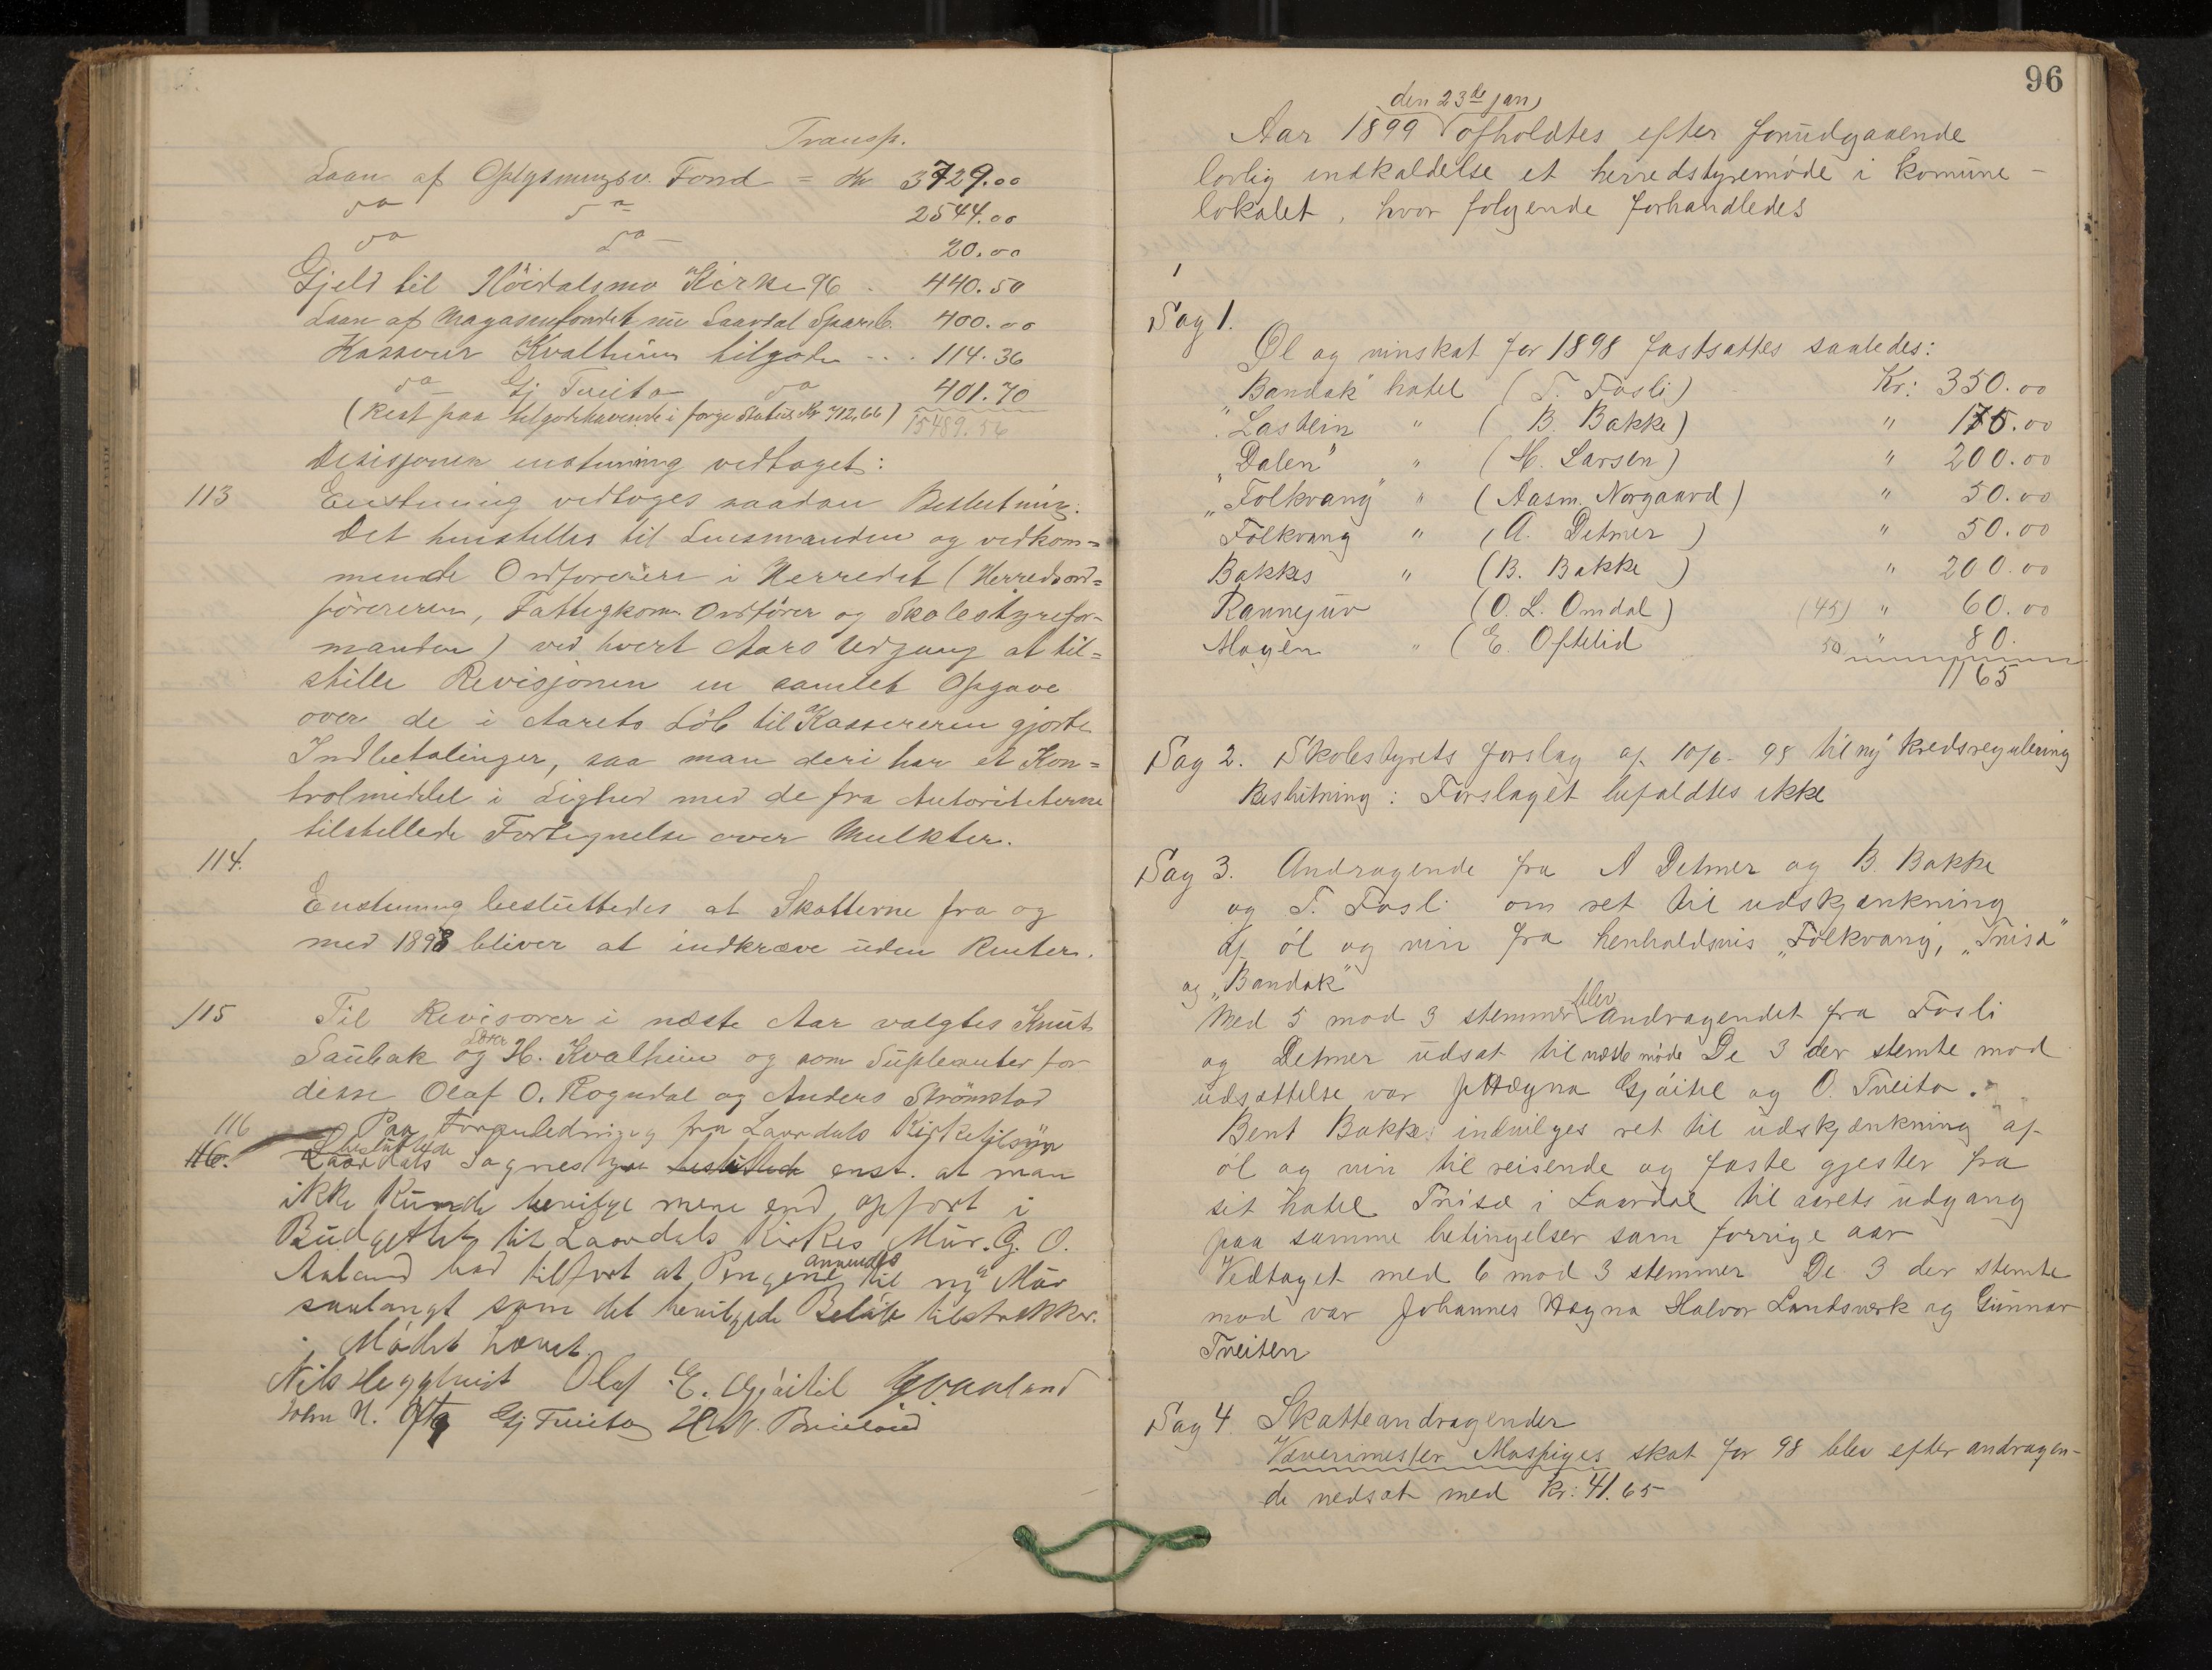 Transp.
Laan af Oplysningsv. Fond = Kr 3729.00
do do 2544.00
do do 20.00
Gjeld til Höidalsmo Kirke 96 . 440.50
Laan af Magasinfondet nu Laardal Spareb. 400.00
Kasserer Kvalheim tilgode . . . 114.36
do Gj Tveito do 401.70
(Rest paa tilgodehavende i forge Status Kr 712,66) 15489.56
Desisjonen enstemmig vedtaget:
113 Enstemmig vedtoges saadan Beslutning:
Det henstilles til Lensmanden og vedkom=
mende Ordförerere i Herredet (Herredsord=
förereren, Fattigkom. Ordförer og Skolestyrefor-
manden) ved hvert Aars Udgang at til=
stille Revisjonen en samlet Opgave
over de i Aarets Löb til Kassereren gjorte
Indbetalinger, saa man deri har et Kon=
trolmiddel i Lighed med de fra Autoriteterne
tilstillede Fortegnelse over Mulkter.
114.
Enstemmig besluttedes at Skatterne fra og
med 1898 bliver at indkræve uden Renter.
115 Til Revisorer i næste Aar valgtes Knut
Saubak og H. Kvalheim og som Supleanter for
disse Olaf O. Rogndal og Anders Strömstad
116 Paa Foranledning fra Laardals Kirketilsyn
116. besluttede
Laardals Sognestyre besluttede enst. at man
ikke kunde bevilge mere end opfört i
Budgettet til Laardals Kirkes Mur. G. O.
Aaland bad tilfört at Pengene anvendes til ny Mur
saalangt som det bevilgede Belöb tilstrækker.
Mödet hævet.
Nils Heggtveit Olaf E. Gjöitil G O Aaland
John N. Ofte Gj Tveito H N. Bruland
96
den 23de jan,
Aar 1899 afholdtes efter forudgaaende
lovlig indkaldelse et herredstyremöde i komune-
lokalet, hvor folgende forhandledes
Sag 1.
Øl og vinskat for 1898 fastsattes saaledes:
"Bandak" hotel (T. Fosli) Kr: 350.00
"Lastein " (B. Bakke) " 175.00
"Dalen" " (H. Larsen) " 200.00
"Folkvang" " (Aasm. Norgaard) " 50.00
Folkvang " (A. Detmer) " 50.00
Bakkes " (B. Bakke) " 200.00
Rannejuv (O. L. Omdal) (45) " 60.00
Mogen " (E. Oftelid 50 " 80.
1165
Sag 2. Skolestyrets forslag af 10/6- 98 til ny kredsregulering
Beslutning: Forslaget bifaldtes ikke
Sag 3. Andragende fra A Detmer og B. Bakke
og T. Fosli om ret til udskjænkning
af öl og vin fra henholdsvis "Folkvang", "Triså"
og "Bandak"
Med 5 mod 3 stemmer blev andragendet fra Fosli
og Detmer udsat til næste möde De 3 der stemte mod
udsættelse var J Hægna Gjöitil og O. Tveito.
Bent Bakke: indvilges ret til udskjænkning af
öl og vin til reisende og faste gjester fra
sit hotel Trisæ i Laardal til aarets udgang
paa samme betingelser som forrige aar
Vedtaget med 6 mod 3 stemmer De 3 der stemte
mod var Johannes Hægna Halvor Landsverk og Gunnar
Tveiten
Sag 4. Skatteandragender
Væverimester Maspiges skat for 98 blev efter andragen-
de nedsat med kr: 41.65